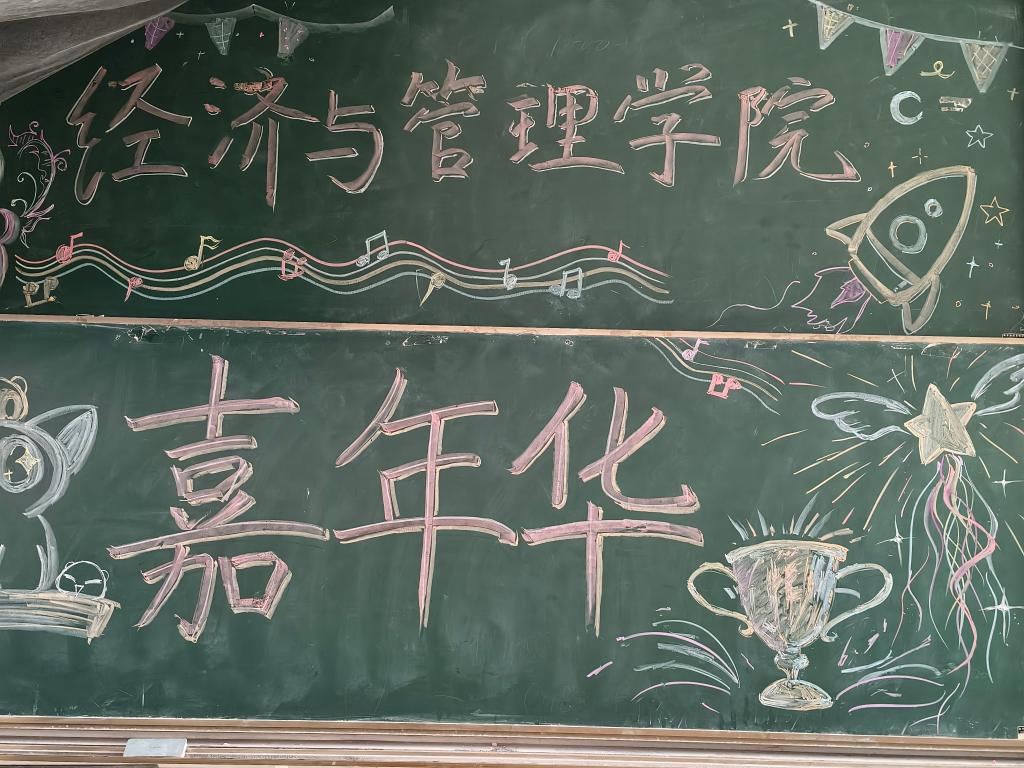 经济与管理学院
嘉年华